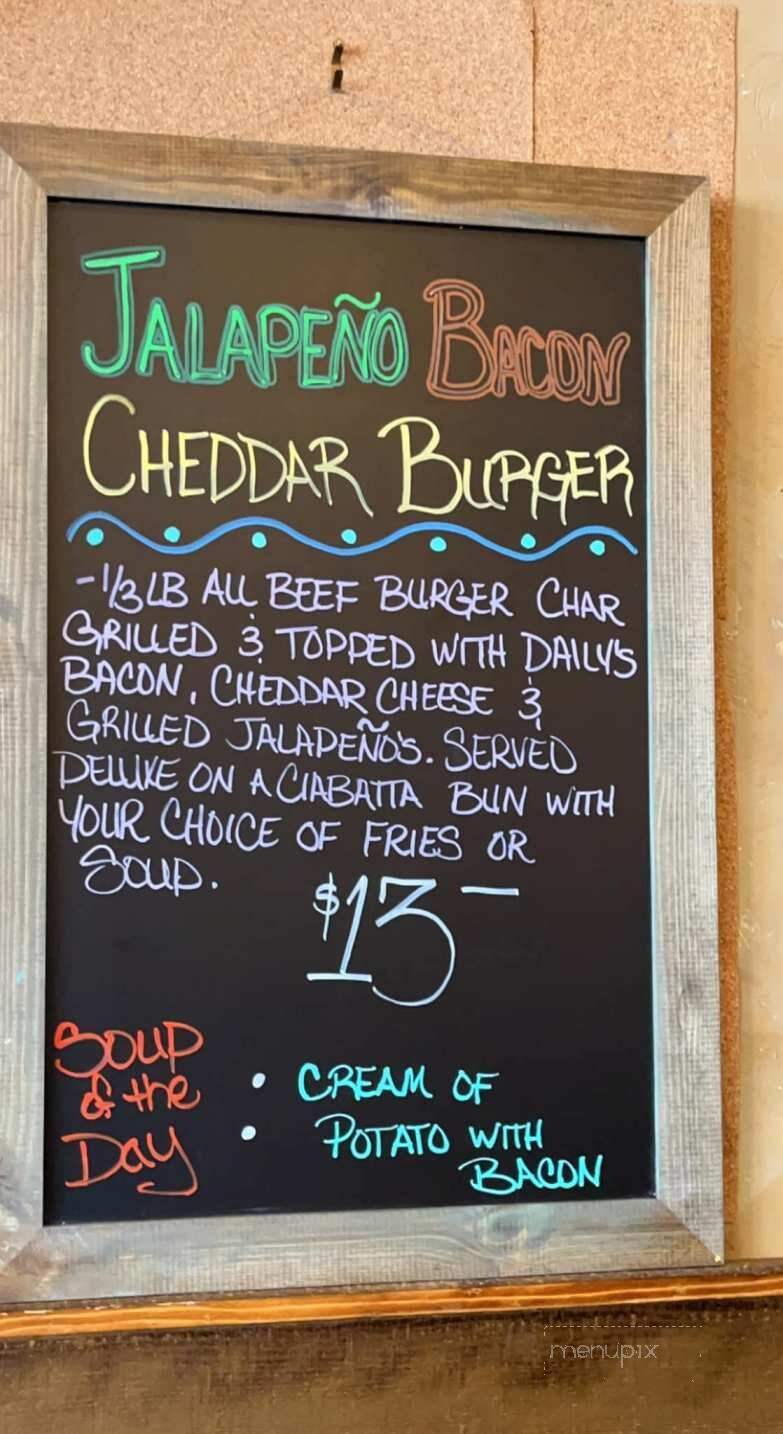 JALAPEÑO BACON
CHEDDAR BURGER
-1/3 LB ALL BEEF BURGER CHAR
GRILLED & TOPPED WITH DAILY'S
BACON, CHEDDAR CHEESE &
GRILLED JALAPEÑO'S. SERVED
DELUXE ON A CIABATTA BUN WITH
YOUR CHOICE OF FRIES OR
SOUP.
$13 —
SOUP
of the
Day
• CREAM OF
• POTATO WITH
BACON
menupix